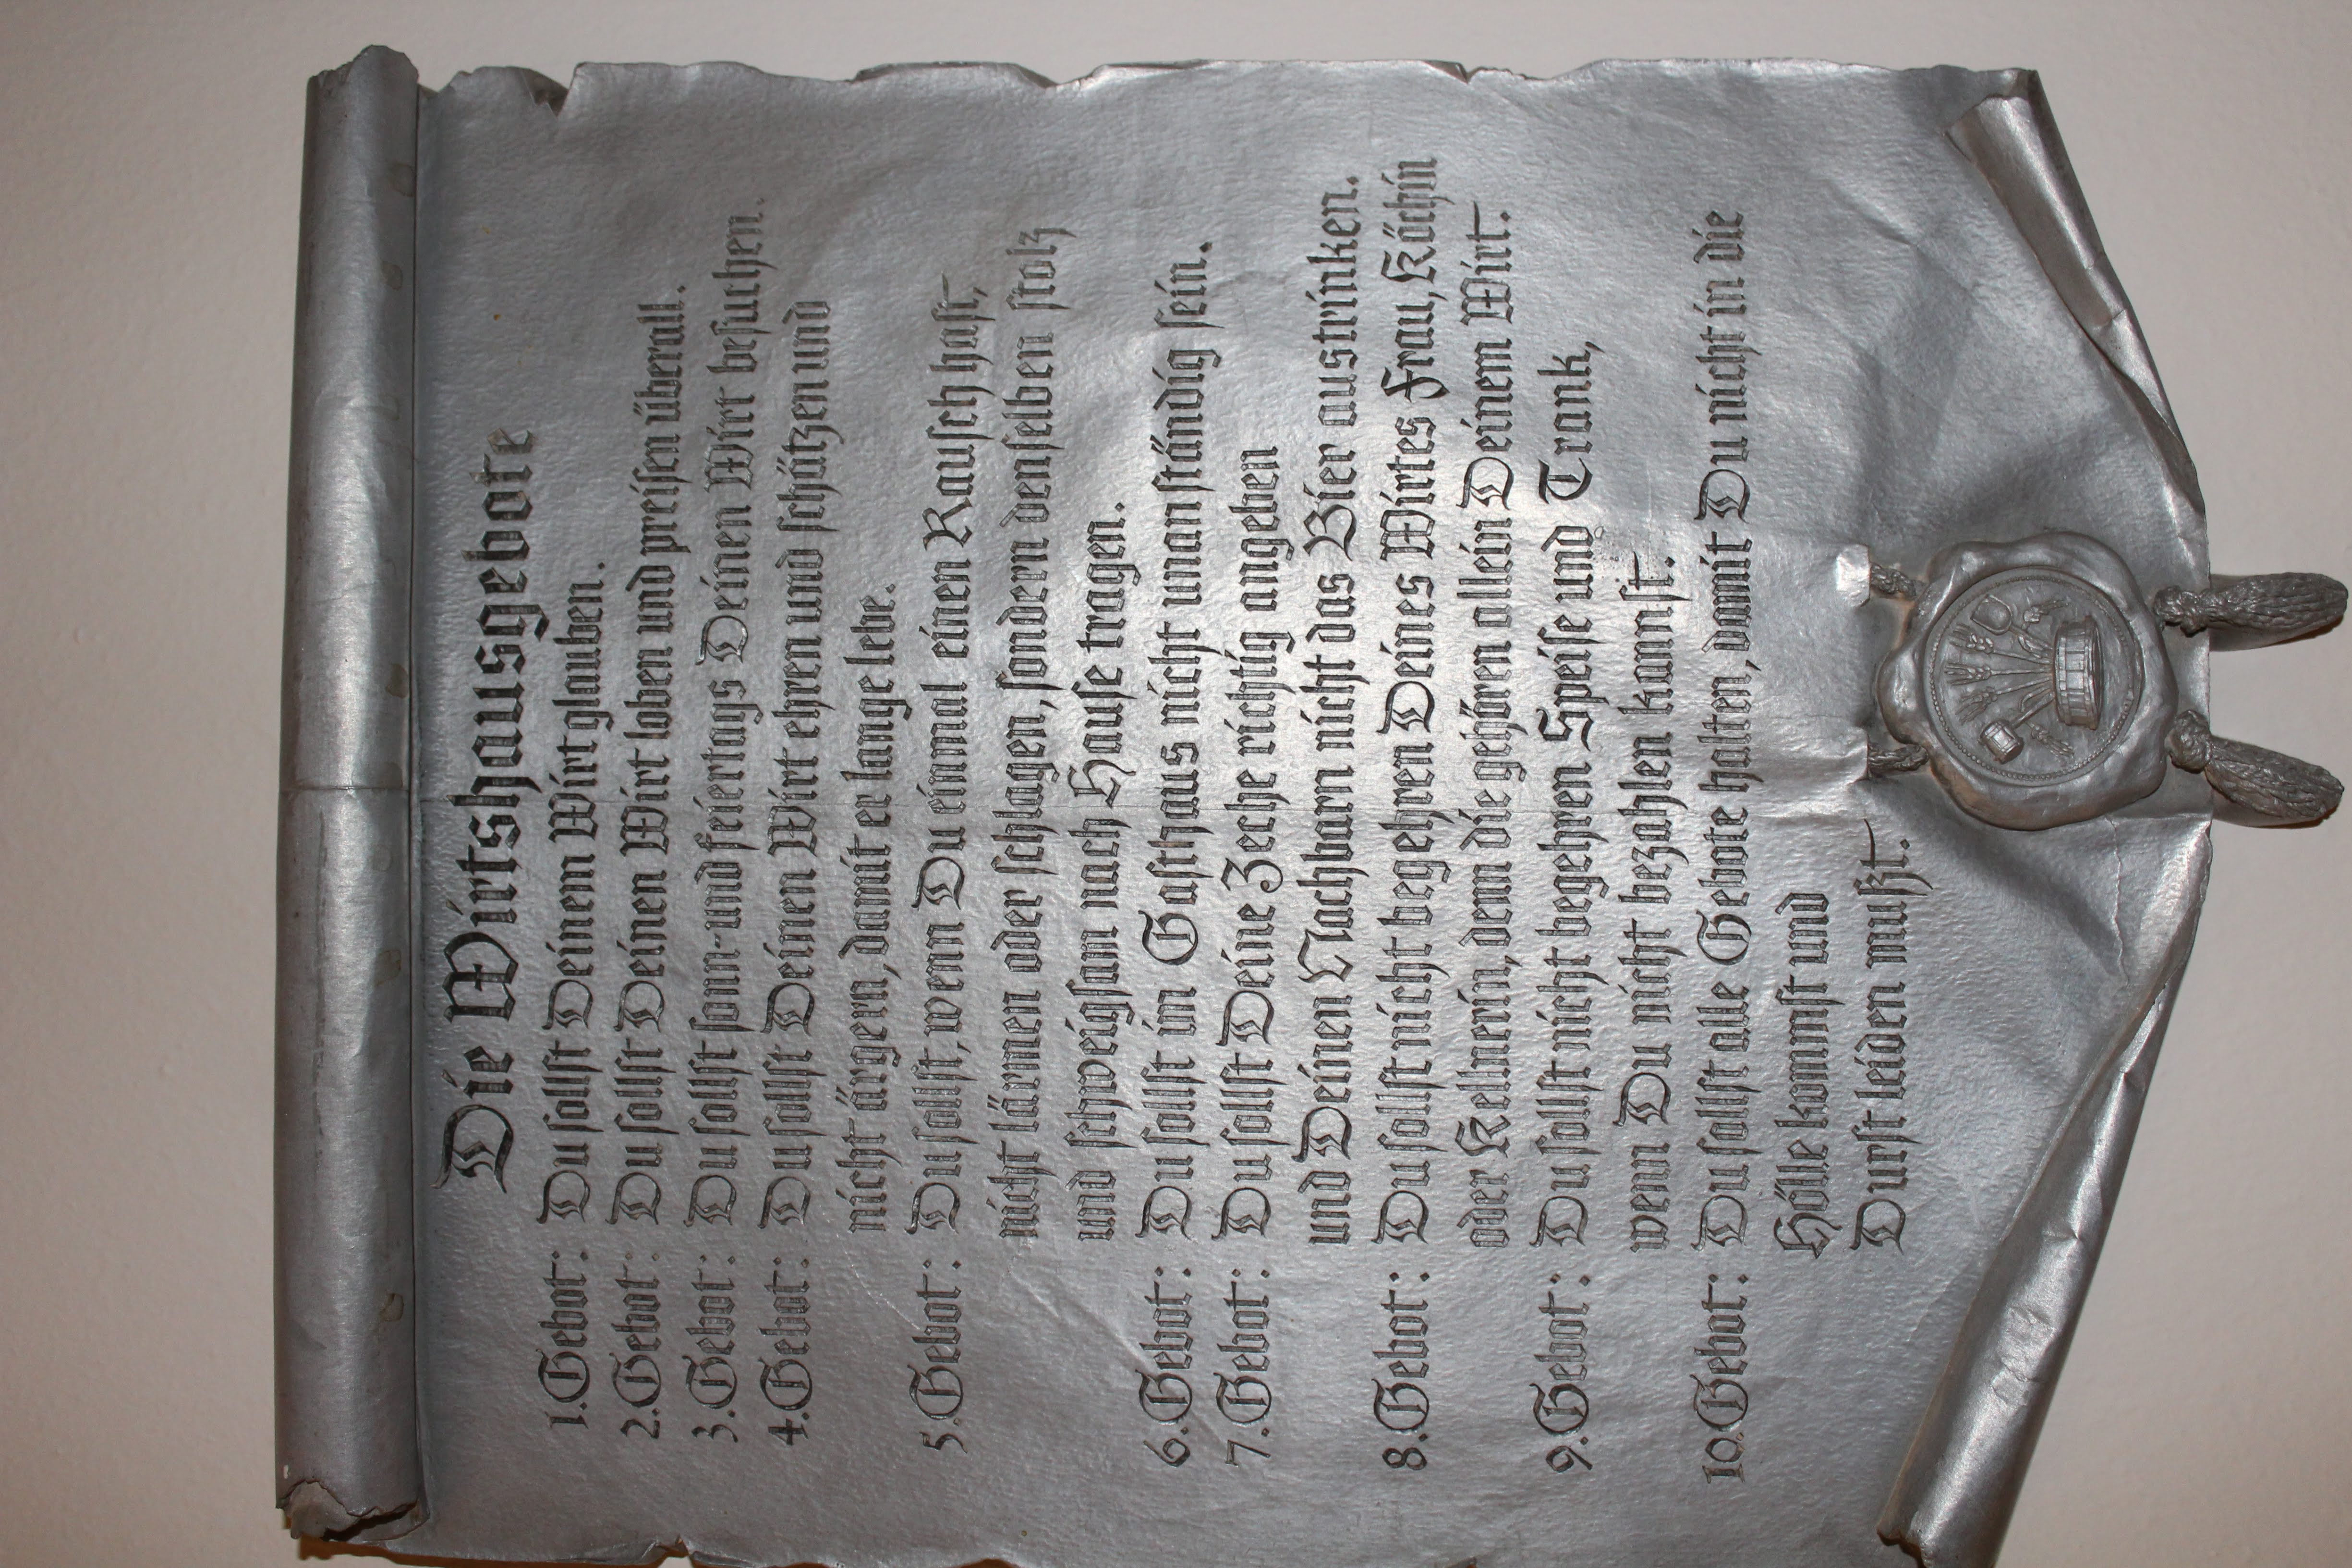 Die Wirtshausgebote
1. Gebot: Du sollst Deinem Wirt glauben.
2. Gebot: Du sollst Deinen Wirt loben und preisen überall.
3. Gebot: Du sollst sonn- und feiertags Deinen Wirt besuchen.
4. Gebot: Du sollst Deinen Wirt ehren und schätzen und
nicht ärgern, damit er lange lebe.
5. Gebot: Du sollst, wenn Du einmal einen Rausch hast,
nicht lärmen oder schlagen, sondern denselben stolz
und schweigsam nach Hause tragen.
6. Gebot: Du sollst im Gasthaus nicht unanständig sein.
7. Gebot: Du sollst Deine Zeche richtig angeben
und Deinen Nachbarn nicht das Bier austrinken.
8. Gebot: Du sollst nicht begehren Deines Wirtes Frau, Köchin
oder Kellnerin, denn die gehören allein Deinem Wirt.
9. Gebot: Du sollst nicht begehren Speise und Trank,
wenn Du nicht bezahlen kannst.
10. Gebot: Du sollst alle Gebote halten, damit Du nicht in die
Hölle kommst und
Durst leiden mußt.